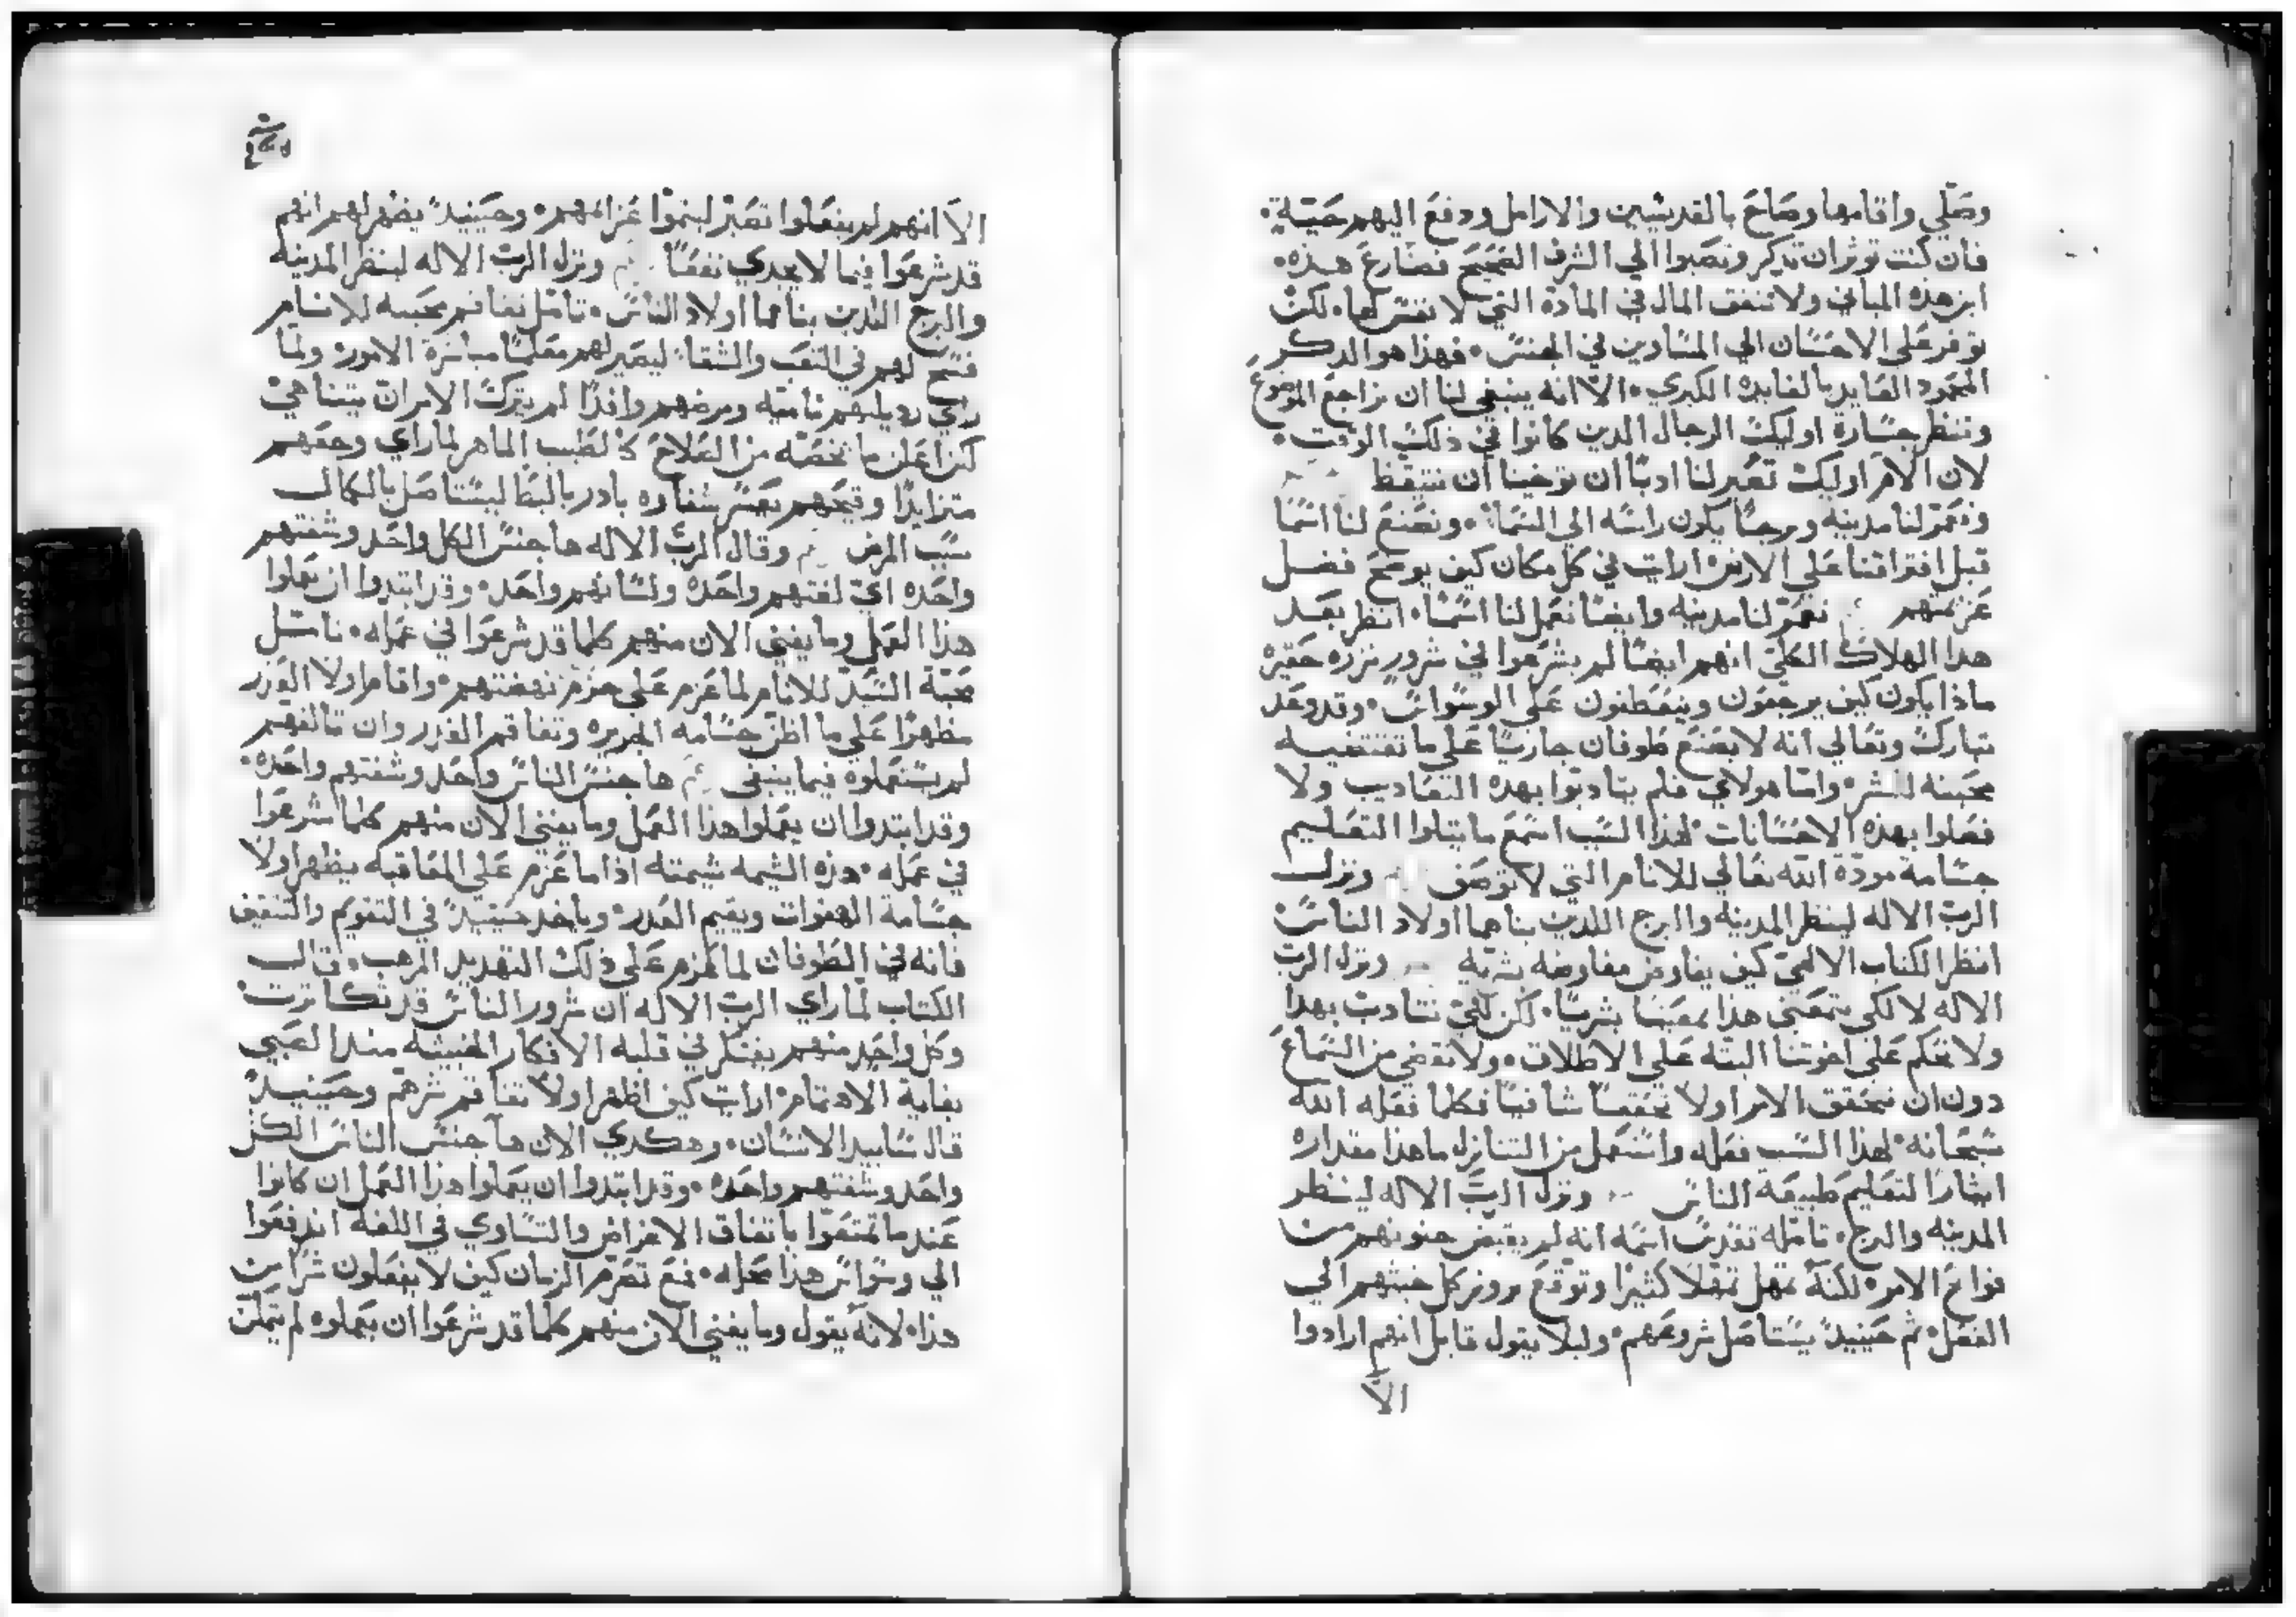 وصلي واقامها وصاح بالقديسين والارامل ودفع اليهم حيّة
فان كنت توثر ان تذكر وتصبوا الي الشرف الصحيح فضارع هذه
ابن هذه المباني ولا تنفق المال في المادة التي لا نفس لها لكن
توفر علي الاحسان الي المساوين في الجنس فهذا هو الدكر
المحمود العايد بالفايده الكبري الا انه ينبغي لنا ان نراجع الموضوع
وننظر جسارة اوليك الرجال الدين كانوا في ذلك الوقت
لان الامر اوليك تصير لنا ادبًا ان توخينا ان نتيقظ
ونعمر لنا مدينه وبرجًا يكون راسه الي السما ونصنع لنا اسمًا
قبل افتراقنا علي الارض ارايت في كل مكان كيف يوضح فضل
عزمتهم نعمر لنا مدينه وايضًا نعمل لنا اسمًا انظر بعد
هدا الهلاك الكلي انهم ايضًا لم يشرعوا في شرور نزره حقيره
ماذا يكون كيف يرجعون وينعطفون علي الوسواس وقد وعد
تبارك وتعالي انه لا يصنع طوفان جاريًا علي ما تقتضيه
محبته للبشر واما هولاي فلم يتادبوا بهده التعاديب ولا
فضلوا بهذه الاحسانات لهذا السبب اسمع ما يتلوا التعليم
جسامة مودة الله تعالي للانام التي لا توصف ونزل
الرب الاله لينظر المدينه والبرج اللدين بناهما اولاد الناس
انظر الكتاب الالهي كيف يفاوض مفاوضه بشريه ونزل الرب
الاله لا لكي نتمعني هذا بمعينًا بشريًا لكن لكي نتادب بهدا
ولا نحكم علي اخوتنا البته علي الاطلاق ولا نقضي من السماع
دون ان نحقق الامر اولا تحققًا شافيًا فكلما فعله الله
سبحانه لهذا السبب فعله واستعمل من التنازل ما هذا مقداره
ايثارًا لتعليم طبيعه الناس ونزل الرب الاله لينظر
المدينه والبرج تامله تقدس اسمه انه لم يقبض جنونهم من
فواتح الامر لكنه تمهل تمهلا كثيرًا وتوقع بروز كل خبثهم الي
الفعل ثم حينيدٍ يستاصل شروعهم وليلا يقول قايل انهم ارادوا
الا
الا انهم لم يفعلوا تصبر ليتموا عزائمهم وحينيدٍ يظهر لهم انهم
قد شرعوا فيما لا يجدي نفعًا ونزل الرب الاله لينظر المدينه
والبرج اللدين بناهما اولاد الناس تامل تفاقم محبته للانام
فسح لهم في التعب والشقا ليصير لهم معلمًا مباشرة الامور ولما
راي رديلتهم ناميه ومرضهم وافدًا لم يترك الامر ان يتناهي
لكن اعلن ما يخصه من الصلاح كالطبيب الماهر لما راي وجعهم
متزايدًا وقيحهم يعسر شفاوه بادر بالبط ليستاصل بالكمال
سبب المرض وقال الرب الاله ها جنس الكل واحد وشفتهم
واحده اي لغتهم واحده ولسانهم واحد وقد ابتدوا ان يعملوا
هذا العمل وما يفني الان منهم كلما قد شرعوا في عمله تامل
محبة السيد للانام لما عزم علي حزم نهضتهم واقام اولا العذر
مظهرًا علي ما اظن جسامه الجريره وتفاقم الغدر وان تالفهم
لم يستعملوه فيما ينبغي ها جنس الناس واحد وشفتهم واحده
وقد ابتدوا ان يعملوا هذا العمل وما يفني الان منهم كلما شرعوا
في عمله هذه الشيمه شيمته اذا ما عزم علي المعاقبه يظهر اولا
جسامة الهفوات ويقيم العدر وياخد حينيدٍ في التقويم والتثقيف
فانه في الطوفان لما عزم علي ذلك التهديد المرهب قال
الكتاب لما راي الرب الاله ان شرور الناس قد تكاثرت
وكل واحد منهم يفتكر في قلبه الافكار الخبيثه مند الصبي
بغاية الاهتمام ارايت كيف اظهر اولا تفاقم شرهم وحينيدٍ
قال سابيد الانسان وهكدي الان ها جنس الناس الكل
واحد وشفتهم واحده وقد ابتدوا ان يعملوا هذا العمل ان كانوا
عند ما تمتعوا باتفاق الاغراض والتساوي في اللغه اندفعوا
الي وسواس هذا محله فمع تصرم الزمان كيف لا يفعلون شرًا من
هذا لانه يقول وما يفني الان منهم كلما قد شرعوا ان يعملوه لم يتمكن